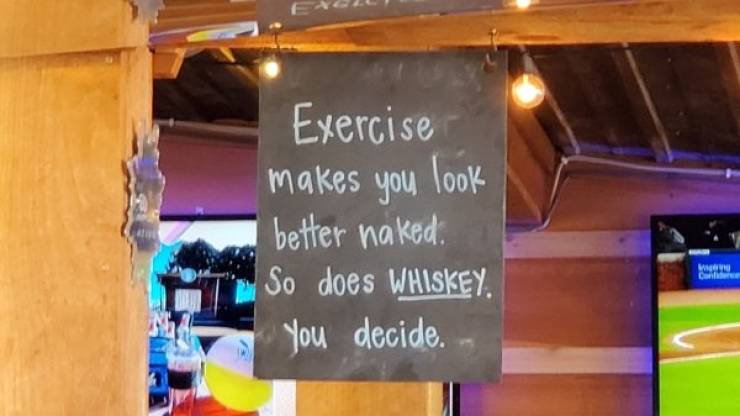 Exercise
makes you look
better naked.
So does WHISKEY.
You decide.
Inspiring
Confidence